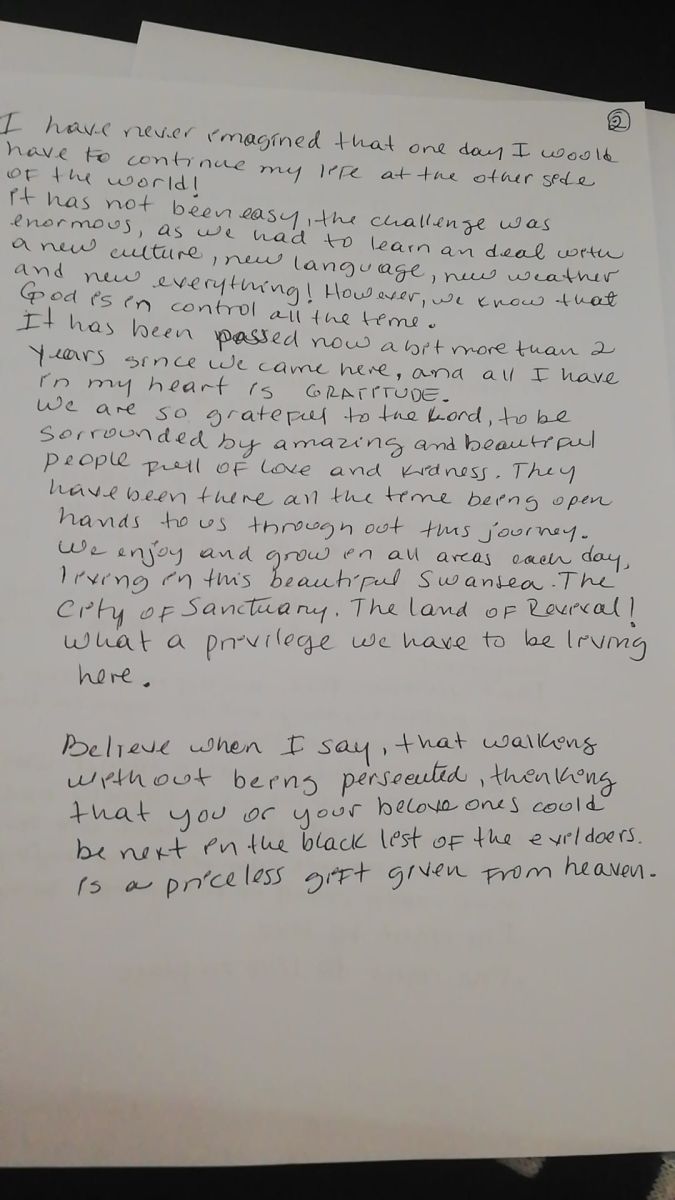 ②
I have never imagined that one day I woold
have to continue my life at the other side
of the world!
it has not been easy, the challenge was
enormous, as we had to learn an deal with
a new culture, new language, new weather
and new everything! However, we know that
God is in control all the time.
It has been passed now a bit more than 2
years since we came here, and all I have
in my heart is GRATITUDE.
We are so grateful to the Lord, to be
sorrounded by amazing and beautiful
people full of love and kidness. They
have been there all the time being open
hands to us through oot this journey.
We enjoy and grow in all areas each day,
living in this beautiful Swansea. The
City of Sanctuary. The land of Revival!
What a privilege we have to be living
here.
Believe when I say, that walking
without being persecuted, thinking
that you or your belove ones coold
be next in the black list of the evildoers.
is a priceless gift given from heaven.